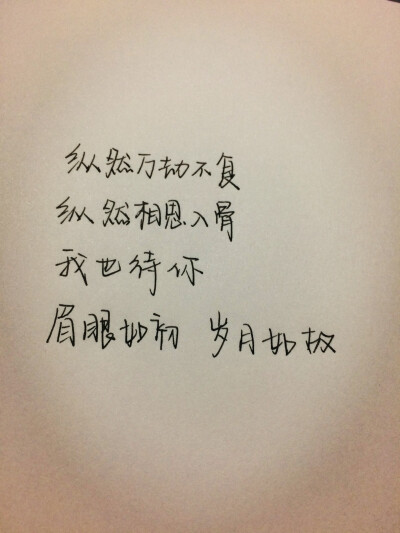 纵然万劫不复
纵然相思入骨
我也待你
眉眼如初 岁月如故